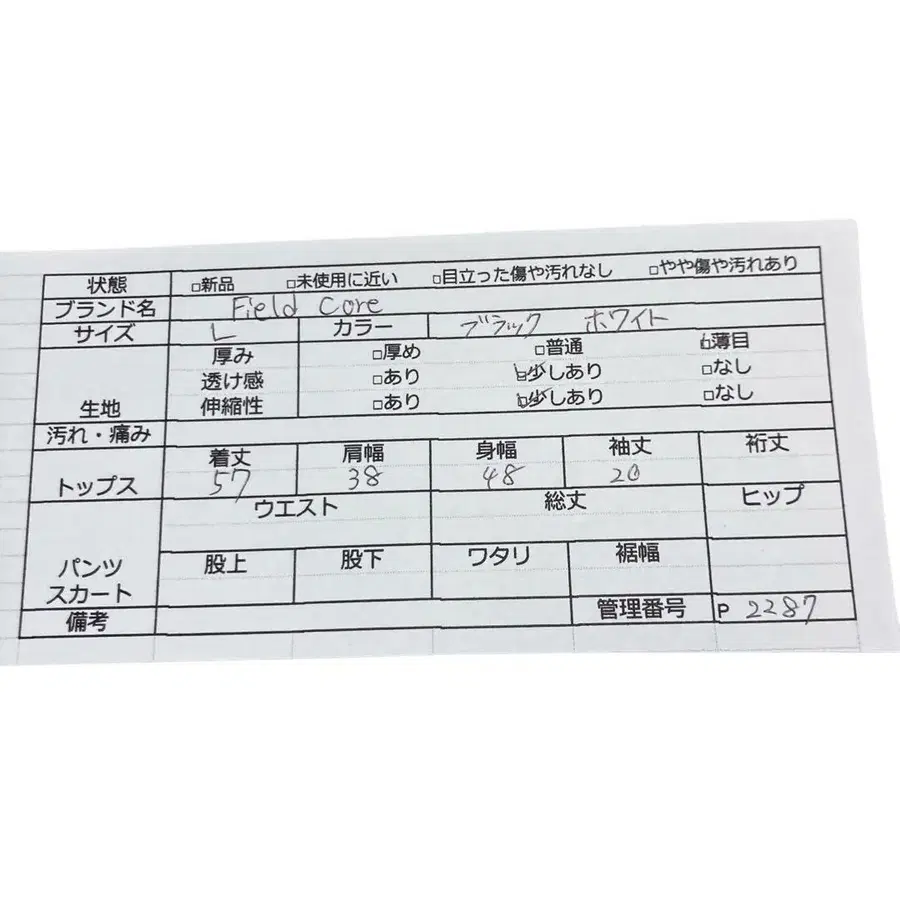 状態 □新品 □未使用に近い □目立った傷や汚れなし □やや傷や汚れあり
ブランド名 Field Core
サイズ L カラー ブラック ホワイト
生地
厚み □厚め □普通 ☑薄目
透け感 □あり ☑少しあり □なし
伸縮性 □あり ☑少しあり □なし
汚れ・痛み
トップス
着丈 肩幅 身幅 袖丈 裄丈
57 38 48 20
パンツ
スカート
ウエスト 総丈 ヒップ
股上 股下 ワタリ 裾幅
備考 管理番号 P 2287